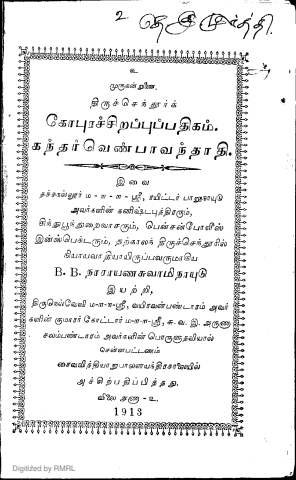 உ
முருகன்துணை.
திருச்செந்தூர்க்
கோபுரச்சிறப்புப்பதிகம்.
கந்தர்வெண்பாவந்தாதி.
இவை
தச்சநல்லூர் ம-ள-ள-ஸ்ரீ, ரயிட்டர் பாறுநாயுடு
அவர்களின் கனிஷ்டபுத்திரரும்,
சிந்துபூந்துறைவாசரும், பென்சன்போலீஸ்
இன்ஸ்பெக்டரும், தற்காலந் திருச்செந்தூரில்
நியாயவாதியாயிருப்பவருமாகிய
B. B. நாராயணசுவாமிநாயுடு
இயற்றி,
திருநெல்வேலி ம-ள-ள-ஸ்ரீ, வயிரவன்பண்டாரம் அவர்
களின் குமாரர் கோட்டாறு ம-ள-ள-ஸ்ரீ, சு. வ. இ. அருணா
சலம்பண்டாரம் அவர்களின் பொருளுதவியால்
சென்னபட்டணம்
சைவவித்தியாநுபாலனயந்திரசாலையில்
அச்சிற்பதிப்பித்தது.
விலை அணா - உ.
1913
Digitized by RMRL